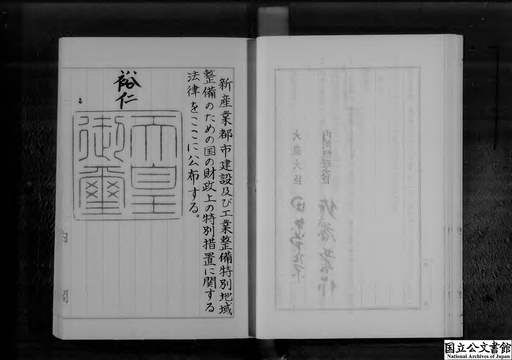 新産業都市建設及び工業整備特別地域
整備のための国の財政上の特別措置に関する
法律をここに公布する。
裕仁
天皇
御璽
大蔵大臣
国立公文書館
National Archives of Japan